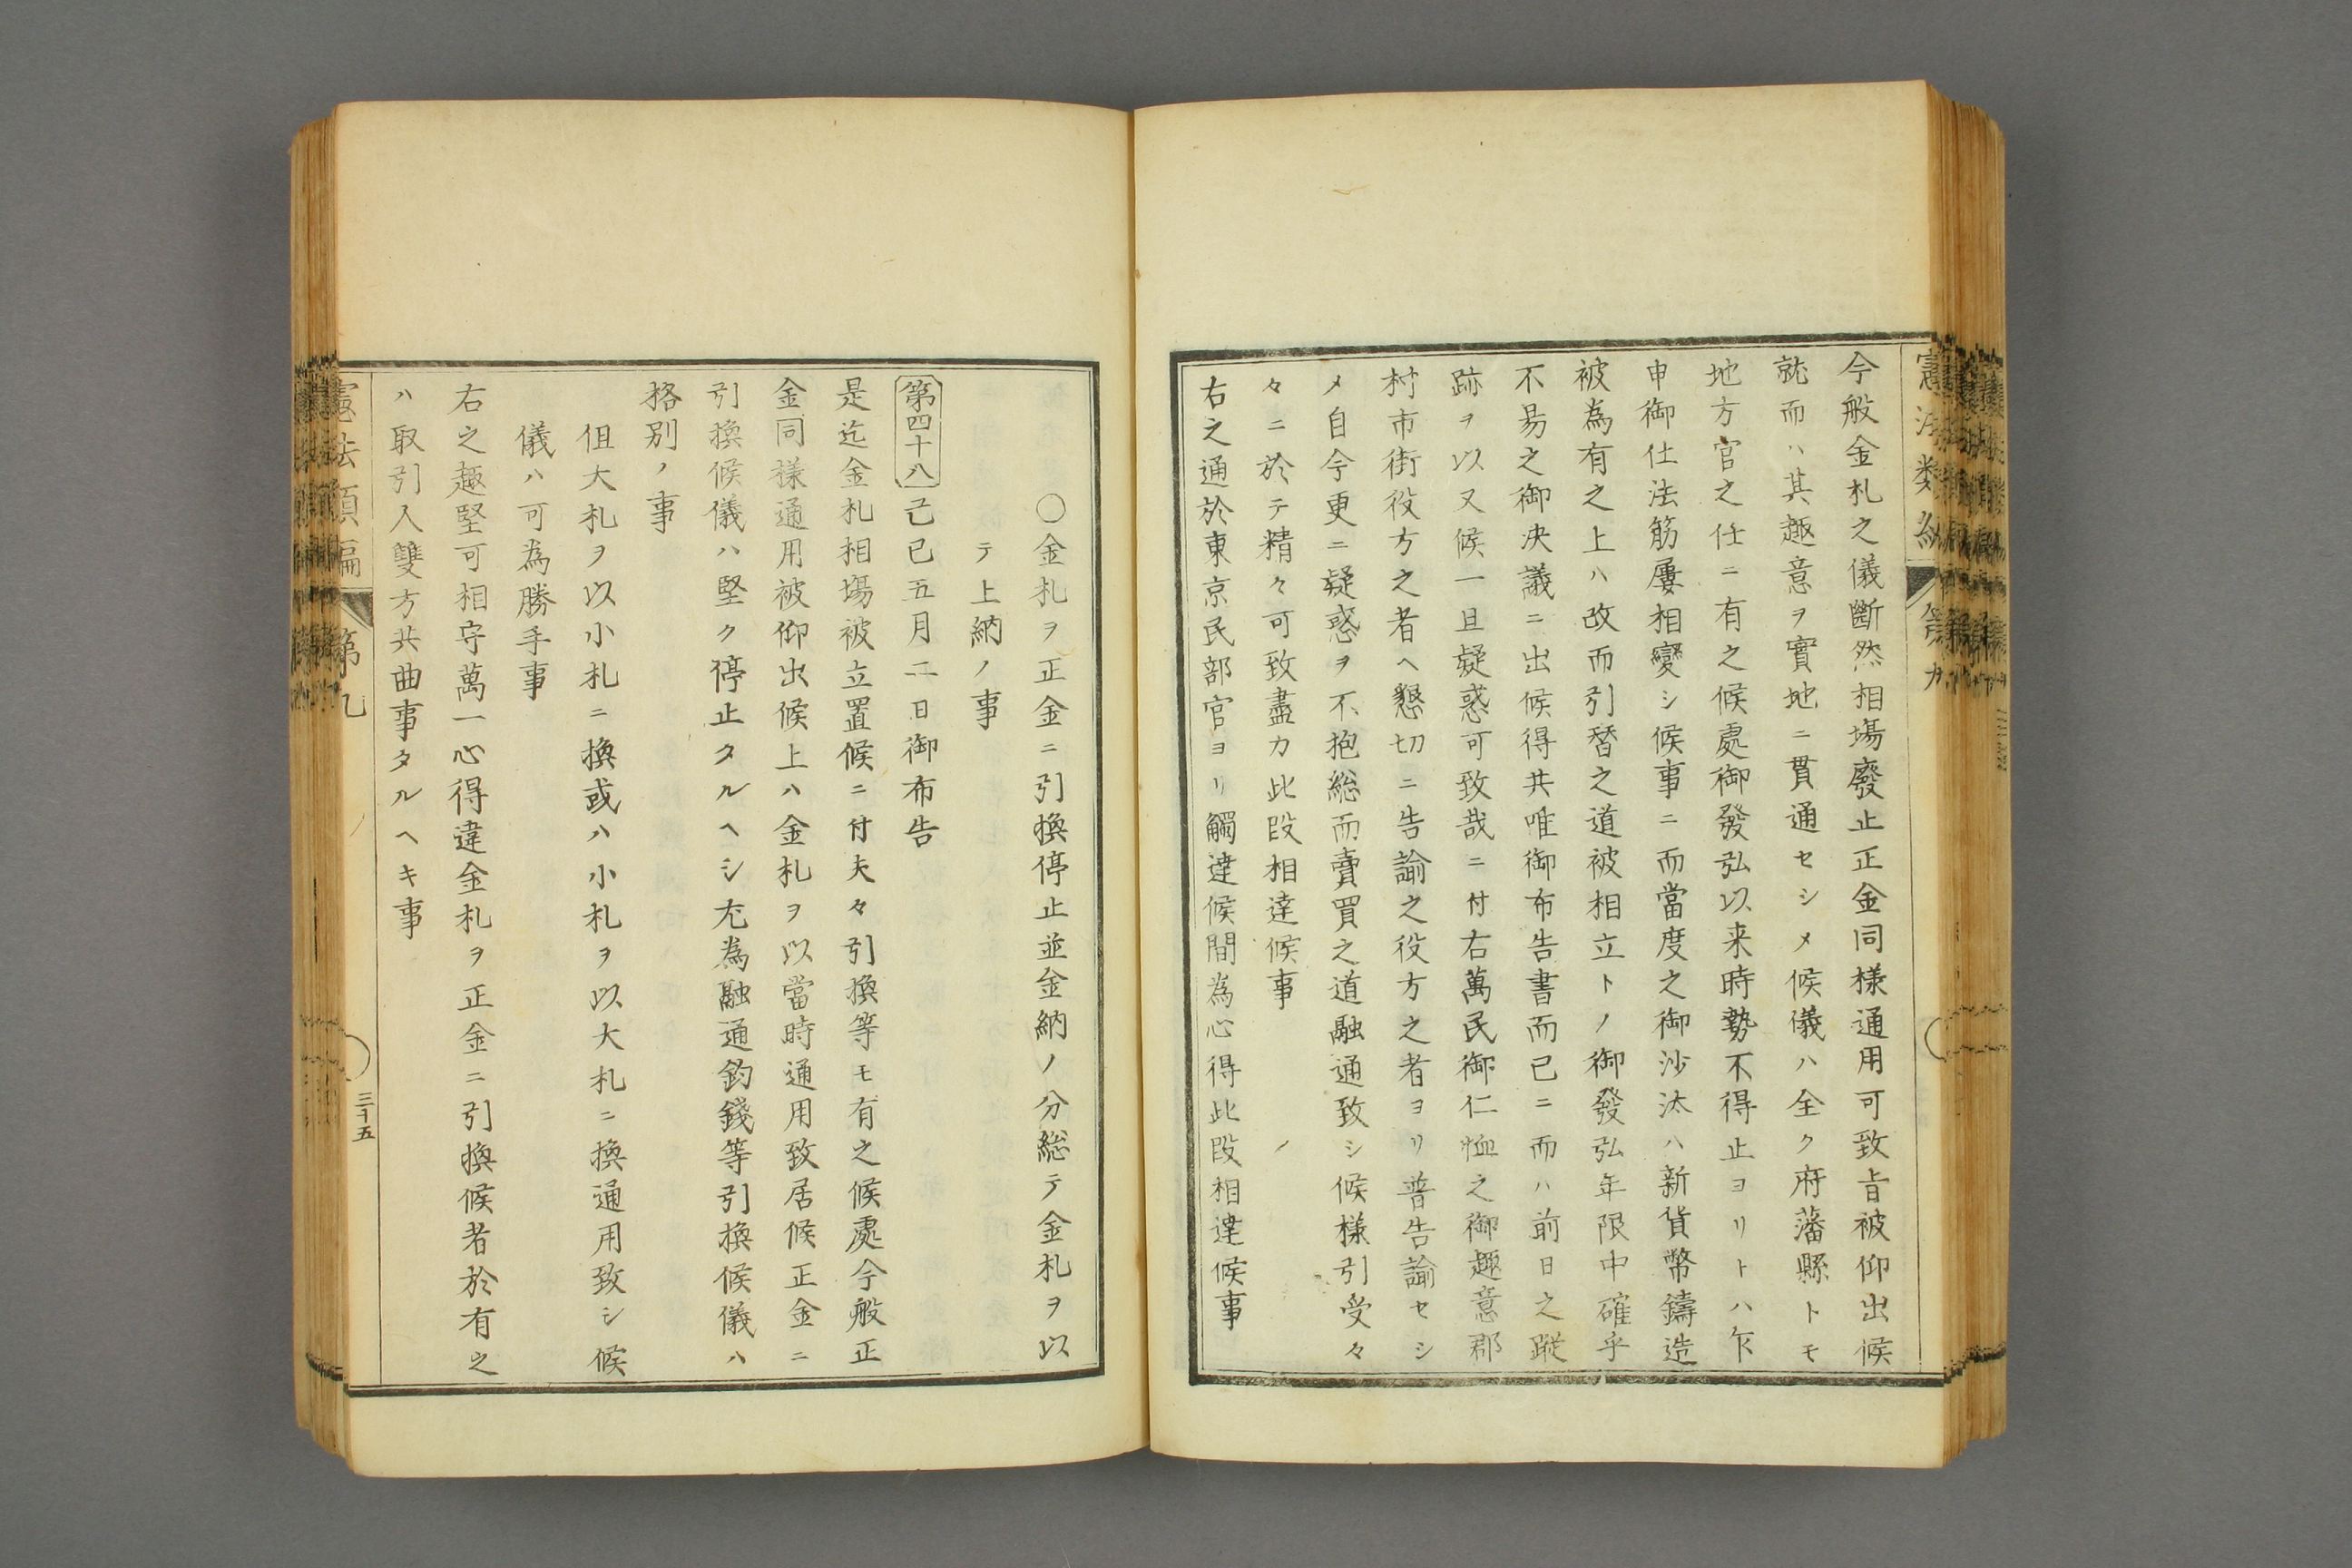 憲法類編
第九
今般金札之儀斷然相場廢止正金同様通用可致旨被仰出候
就而ハ其趣意ヲ實地ニ貫通セシメ候儀ハ全ク府藩縣トモ
地方官之任ニ有之候處御發弘以来時勢不得止ヨリトハ乍
申御仕法筋屢相變シ候事ニ而當度之御沙汰ハ新貨幣鑄造
被為有之上ハ改而引替之道被相立トノ御發弘年限中確乎
不易之御決議ニ出候得共唯御布告書而已ニ而ハ前日之蹤
跡ヲ以又候一旦疑惑可致哉ニ付右萬民御仁恤之御趣意郡
村市街役方之者ヘ懇切ニ告諭之役方之者ヨリ普告諭セシ
メ自今更ニ疑惑ヲ不抱総而賣買之道融通致シ候様引受々
々ニ於テ精々可致盡力此段相達候事
右之通於東京民部官ヨリ觸達候間為心得此段相達候事
〇金札ヲ正金ニ引換停止並金納ノ分総テ金札ヲ以
テ上納ノ事
第四十八 己巳五月二日御布告
是迄金札相場被立置候ニ付夫々引換等モ有之候處今般正
金同様通用被仰出候上ハ金札ヲ以當時通用致居候正金ニ
引換候儀ハ堅ク停止タルヘシ尤為融通釣錢等引換候儀ハ
格別ノ事
伹大札ヲ以小札ニ換或ハ小札ヲ以大札ニ換通用致シ候
儀ハ可為勝手事
右之趣堅可相守萬一心得違金札ヲ正金ニ引換候者於有之
ハ取引人雙方共曲事タルヘキ事
憲法類編
第九
三十五